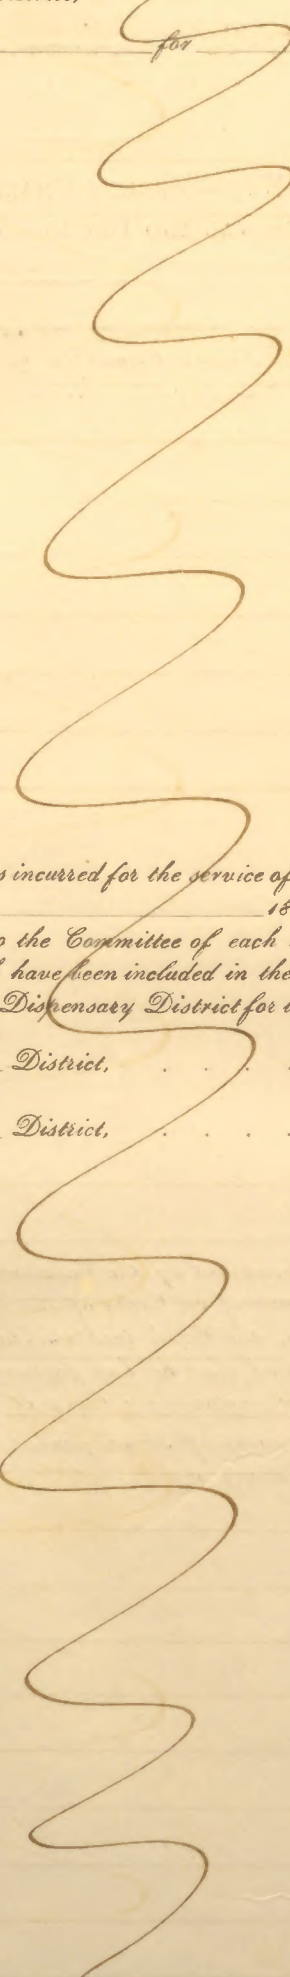 for
incurred for the service of
18
the Committee of each
have been included in the
Dispensary District for
District,
District,